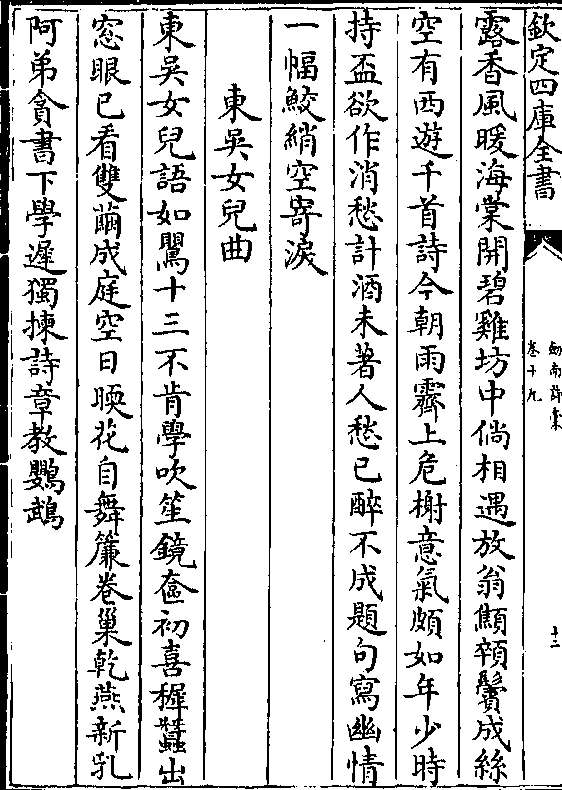 欽定四庫全書
劍南詩稾
卷十九
十二
露香風暖海棠開碧雞坊中倘相遇放翁顦顇鬢成絲
空有西遊千首詩今朝雨霽上危榭意氣頗如年少時
持盃欲作消愁計酒未著人愁已醉不成題句寫幽情
一幅鮫綃空寄淚
東吳女兒曲
東吳女兒語如鸎十三不肯學吹笙鏡奩初喜穉蠶出
窓眼已看雙繭成庭空日暎花自舞簾卷巢乾燕新乳
阿弟貪書下學遲獨揀詩章教鸚鵡